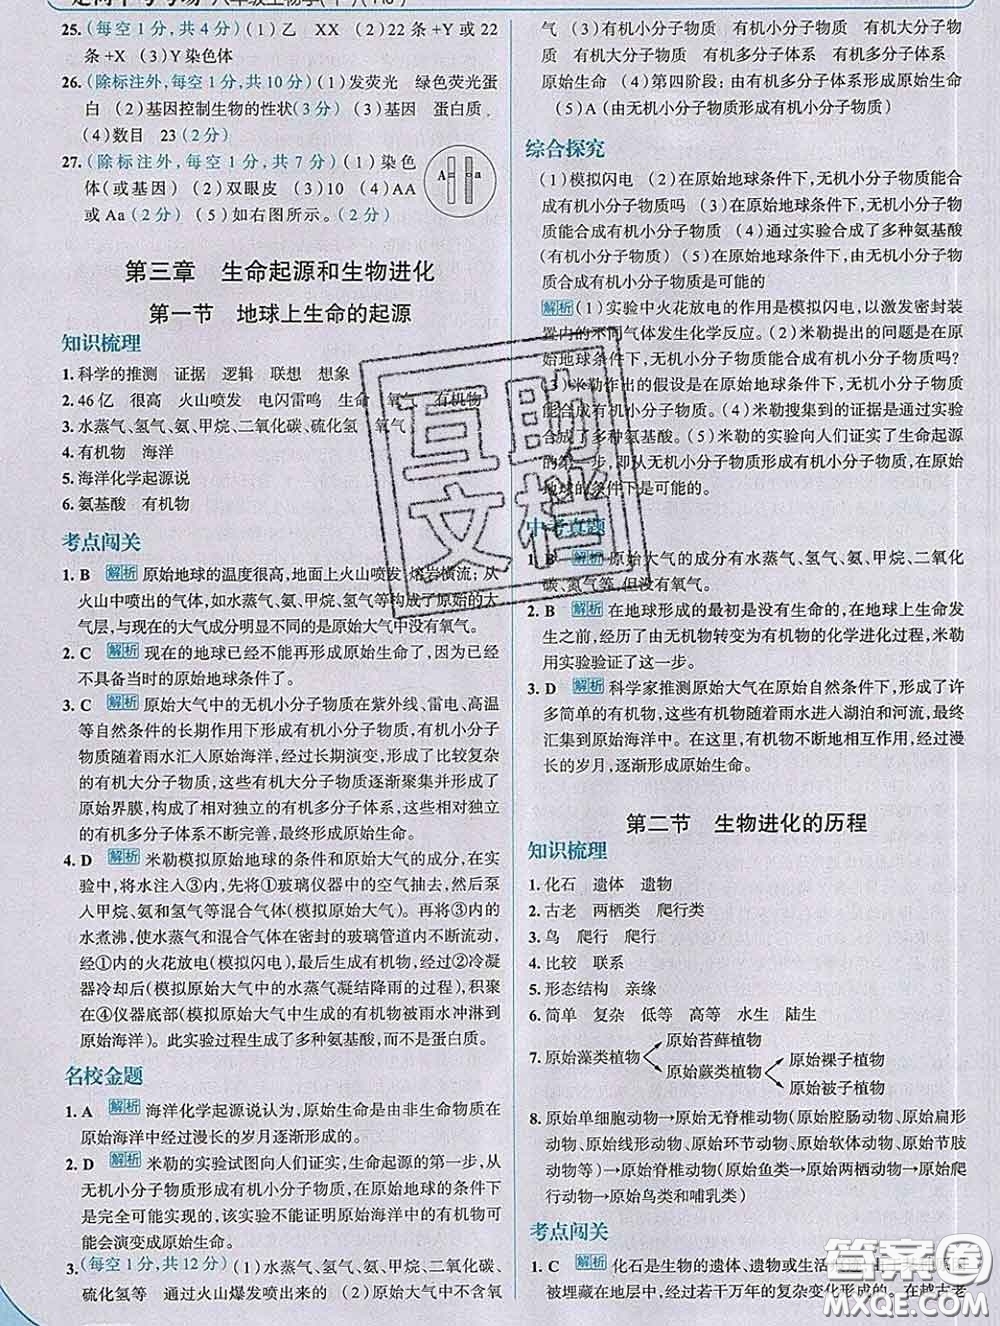 25.(每空1分,共4分)(1)乙 XX (2)22条+Y或22
条+X (3)Y染色体
26.(除标注外,每空1分,共10分)(1)发荧光 绿色荧光蛋
白 (2)基因控制生物的性状(3分) (3)基因 蛋白质
(4)数目 23(2分)
27.(除标注外,每空1分,共7分)(1)染色
体(或基因) (2)双眼皮 (3)10 (4)AA
或Aa(2分) (5)如右图所示。(2分)
A a
第三章 生命起源和生物进化
第一节 地球上生命的起源
知识梳理
1.科学的推测 证据 逻辑 联想 想象
2.46亿 很高 火山喷发 电闪雷鸣 生命 氧气 有机物
3.水蒸气、氢气、氨、甲烷、二氧化碳、硫化氢 氧气
4.有机物 海洋
5.海洋化学起源说
6.氨基酸 有机物
考点闯关
1. B 解析 原始地球的温度很高,地面上火山喷发、熔岩横流;从
火山中喷出的气体,如水蒸气、氨、甲烷、氢气等构成了原始的大
气层,与现在的大气成分明显不同的是原始大气中没有氧气。
2. C 解析 现在的地球已经不能再形成原始生命了,因为已经
不具备当时的原始地球条件了。
3. C 解析 原始大气中的无机小分子物质在紫外线、雷电、高温
等自然条件的长期作用下形成有机小分子物质,有机小分子
物质随着雨水汇入原始海洋,经过长期演变,形成了比较复杂
的有机大分子物质,这些有机大分子物质逐渐聚集并形成了
原始界膜,构成了相对独立的有机多分子体系,这些相对独立
的有机多分子体系不断完善,最终形成原始生命。
4. D 解析 米勒模拟原始地球的条件和原始大气的成分,在实
验中,将水注入③内,先将①玻璃仪器中的空气抽去,然后泵
入甲烷、氨和氢气等混合气体(模拟原始大气)。再将③内的
水煮沸,使水蒸气和混合气体在密封的玻璃管道内不断流动,
经①内的火花放电(模拟闪电),最后生成有机物,经过②冷凝
器冷却后(模拟原始大气中的水蒸气凝结降雨的过程),积聚
在④仪器底部(模拟原始大气中生成的有机物被雨水冲淋到
原始海洋)。此实验过程生成了多种氨基酸,而不是蛋白质。
名校金题
1. A 解析 海洋化学起源说认为,原始生命是由非生命物质在
原始海洋中经过漫长的岁月逐渐形成的。
2. D 解析 米勒的实验试图向人们证实,生命起源的第一步,从
无机小分子物质形成有机小分子物质,在原始地球的条件下
是完全可能实现的,该实验不能证明原始海洋中的有机物可
能会演变成原始生命。
3.(每空1分,共12分)(1)水蒸气、氢气、氨、甲烷、二氧化碳、
硫化氢等 通过火山爆发喷出来的 (2)大气中不含氧
气 (3)有机小分子物质 原始大气 有机小分子物
质 有机大分子物质 有机多分子体系 有机多分子体系
原始生命 (4)第四阶段:由有机多分子体系形成原始生命
(5)A(由无机小分子物质形成有机小分子物质)
综合探究
(1)模拟闪电 (2)在原始地球条件下,无机小分子物质能合
成有机小分子物质吗 (3)在原始地球条件下,无机小分子物质
能合成有机小分子物质 (4)通过实验合成了多种氨基酸
(有机小分子物质) (5)在原始地球条件下,无机小分子物质合
成有机小分子物质是可能的
解析 (1)实验中火花放电的作用是模拟闪电,以激发密封装
置内的不同气体发生化学反应。(2)米勒提出的问题是在原
始地球条件下,无机小分子物质能合成有机小分子物质吗?
(3)米勒作出的假设是在原始地球条件下,无机小分子物质
能合成有机小分子物质。(4)米勒搜集到的证据是通过实验
合成了多种氨基酸。(5)米勒的实验向人们证实了生命起源
的第一步,即从无机小分子物质形成有机小分子物质,在原始
地球的条件下是可能的。
中考真题
1. B 解析 原始大气的成分有水蒸气、氢气、氨、甲烷、二氧化
碳、氮气等,但没有氧气。
2. B 解析 在地球形成的最初是没有生命的,在地球上生命发
生之前,经历了由无机物转变为有机物的化学进化过程,米勒
用实验验证了这一步。
3. D 解析 科学家推测原始大气在原始自然条件下,形成了许
多简单的有机物,有机物随着雨水进入湖泊和河流,最终
汇集到原始海洋中。在这里,有机物不断地相互作用,经过漫
长的岁月,逐渐形成原始生命。
第二节 生物进化的历程
知识梳理
1.化石 遗体 遗物
2.古老 两栖类 爬行类
3.鸟 爬行 爬行
4.比较 联系
5.形态结构 亲缘
6.简单 复杂 低等 高等 水生 陆生
7.原始藻类植物 原始苔藓植物 原始蕨类植物 原始裸子植物 原始被子植物
8.原始单细胞动物→原始无脊椎动物(原始腔肠动物、原始扁形
动物、原始线形动物、原始环节动物、原始软体动物、原始节肢
动物等)→原始脊椎动物(原始鱼类→原始两栖动物→原始爬
行动物→原始鸟类和哺乳类)
考点闯关
1. C 解析 化石是生物的遗体、遗物或生活
被埋藏在地层中,经过若干万年的复杂变化形成的。在越古老
互助文档
答案圈
MXQE.COM